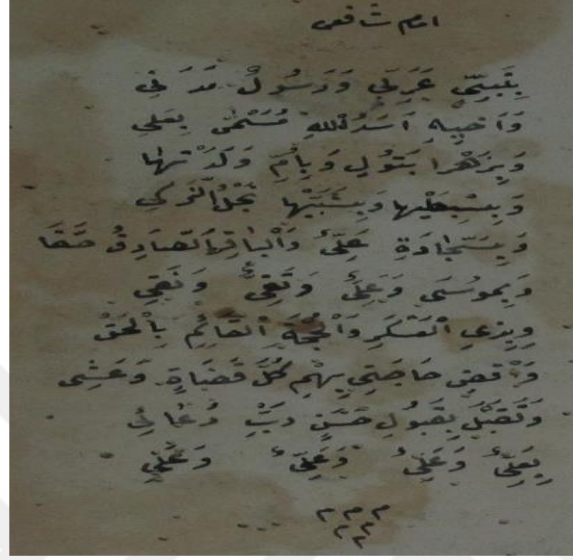 امام شافعى
بِنَبِيٍّ عَرَبِيٍّ وَرَسُولٍ مَدَنِي
وَاَخِيهِ اَسَدُ اللّٰهِ مُسَمّٰى بِعَلِي
وَبِزَهْرَا بَتُولٍ وَبِاُمٍّ وَلَدَتْهَا
وَبِسِبْطَيْهَا وَبِشِبْلَيْهَا نَجْلُ الزَكِي
وَبِسَجَّادَةِ عَلِيٍّ وَالْبَاقِرِ الصَّادِقُ حَقَّا
وَبِمُوسَى وَعَلِيٍّ وَتَقِيٍّ وَنَقِي
وَبِذِي الْعَسْكَرِ وَالْحُجَّةِ الْقَائِمِ بِالْحَقْ
وَاقْضِ حَاجَتِى بِهِمْ كُلَّ غَدَاةٍ وَعَشِى
وَتَقَبَّلْ بِقَبُولٍ حَسَنٍ رَبِّ دُعَائِى
بِعَلِيٍّ وَعَلِيٍّ وَعَلِيٍّ وَعَلِي